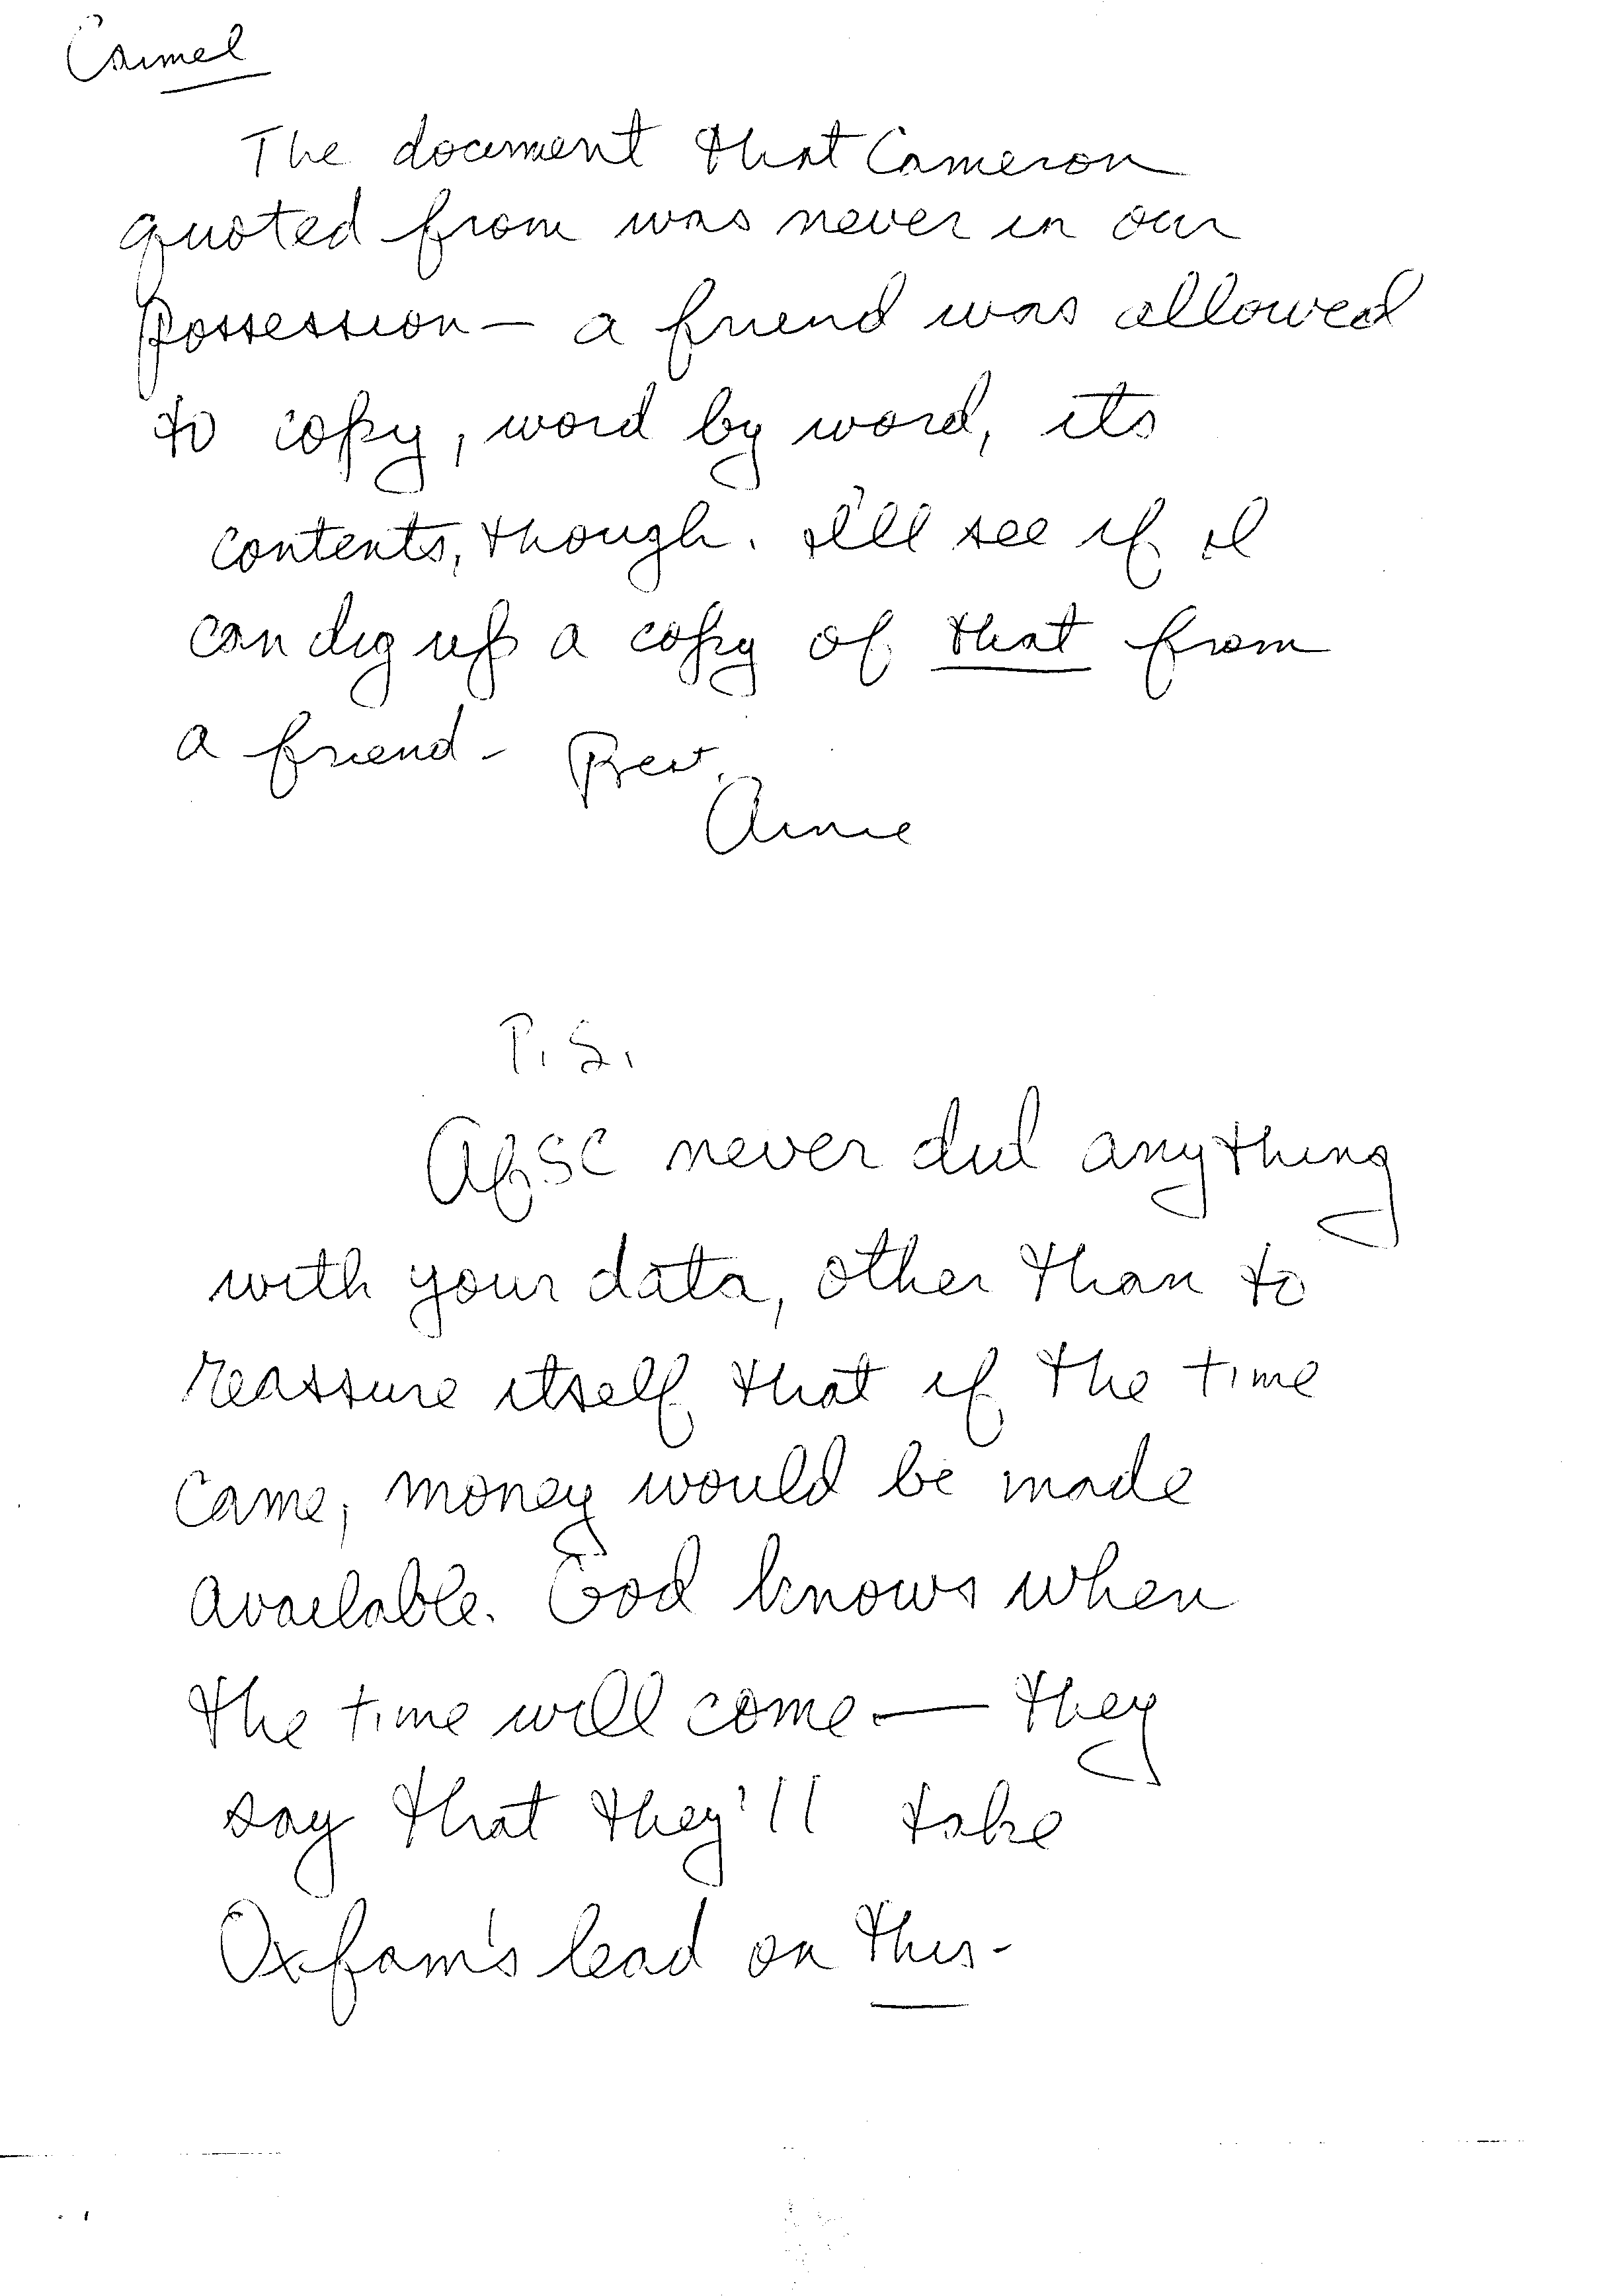 Carmel
The document that Cameron
quoted from was never in our
possession — a friend was allowed
to copy, word by word, its
contents, though. I'll see if I
can dig up a copy of that from
a friend - Best,
Arnie
P.S.
AFSC never did anything
with your data, other than to
reassure itself that if the time
came, money would be made
available. God knows when
the time will come — they
say that they'll take
Oxfam's lead on this -